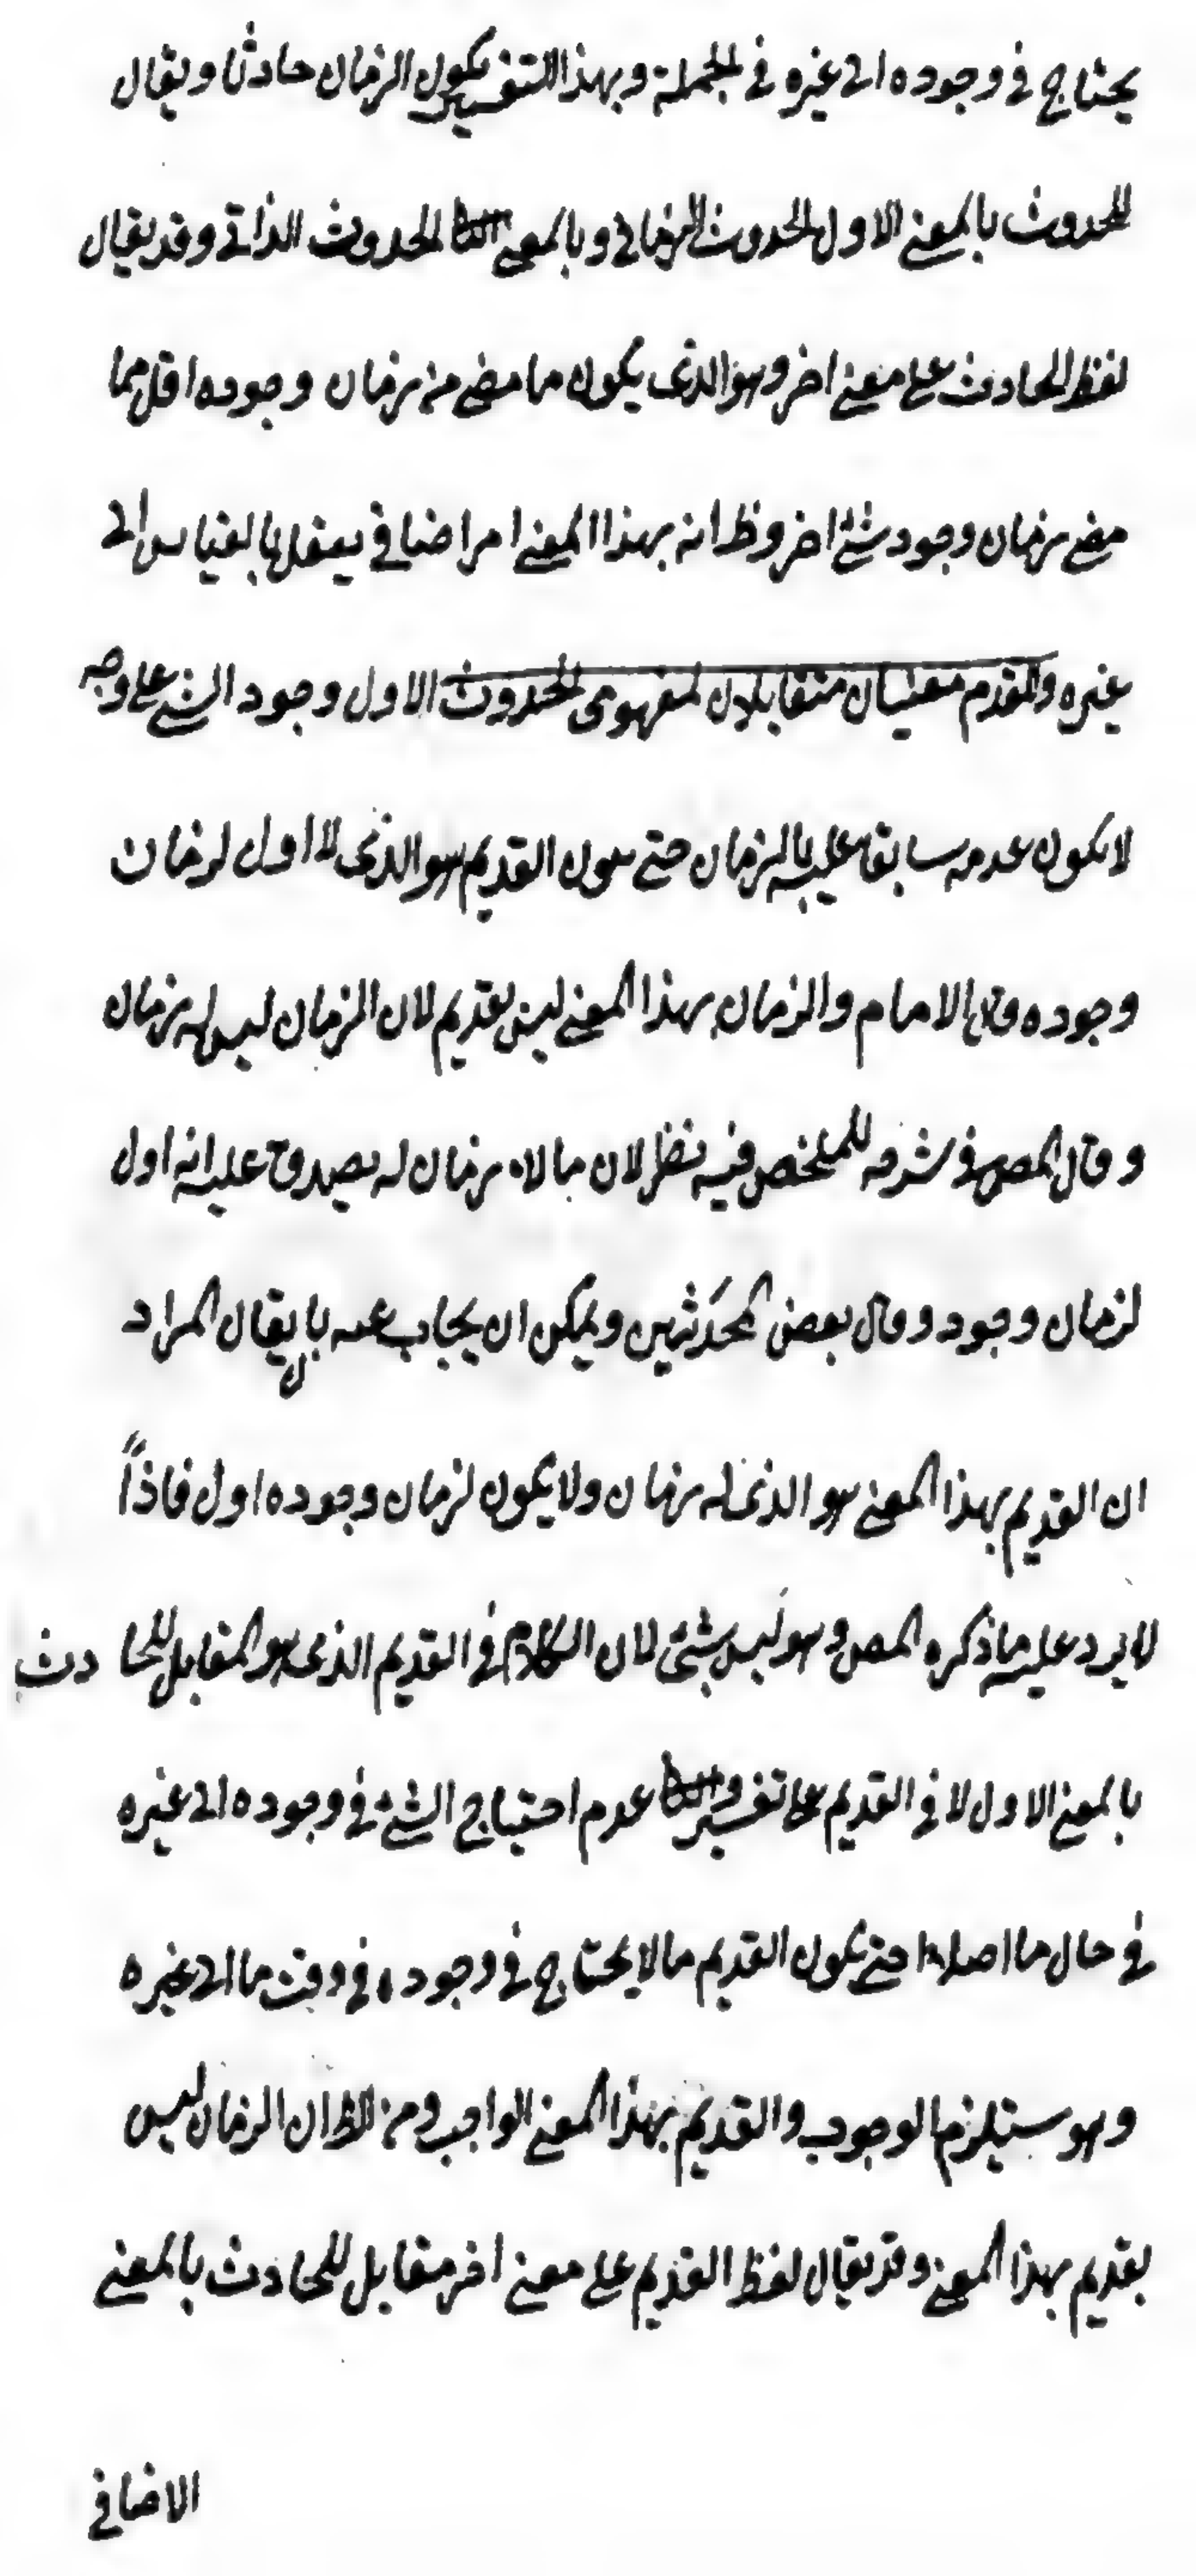 يحتاج في وجوده الى غيره في الجملة وبهذا التفسير يكون الزمان حادثا ويقال
للحدوث بالمعنى الاول الحدوث الزماني وبالمعنى الثا الحدوث الذاتي وقد يقال
لفظ الحادث على معنى اخر وهو الذى يكون ما مضى من زمان وجوده اقل مما
مضى زمان وجود شئ اخر وظ انه بهذا المعنى امر اضافي يعقل بالقياس الى
غيره وللقدم معنيان متقابلان لمفهومى الحدوث الاول وجود الشئ على وجه
لا يكون عدمه سابقا عليه بالزمان حتى يكون القديم هو الذى لا اول لزمان
وجوده وقال الامام والزمان بهذا المعنى ليس بقديم لان الزمان ليس له زمان
وقال المص في شرحه للملخص فيه نظر لان ما لا زمان له يصدق عليه انه اول
لزمان وجود وقال بعض المحدثين ويمكن ان يجاب عنه بان يقال المراد
ان القديم بهذا المعنى هو الذى له زمان ولا يكون لزمان وجوده اول فاذاً
لا يرد عليه ما ذكره المص وهو ليس بشئ لان الكلام في القديم الذى هو المقابل للحا دث
بالمعنى الاول لا في القديم على تفسير والثا عدم احتياج الشئ في وجوده الى غيره
في حال ما اصلا حتى يكون القديم ما لا يحتاج في وجوده في وقت ما الى غيره
وهو يستلزم الوجوب والقديم بهذا المعنى الواجب ومن الظ ان الزمان ليس
بقديم بهذا المعنى وقد يقال لفظ القديم على معنى اخر مقابل للحادث بالمعنى
الاضافي